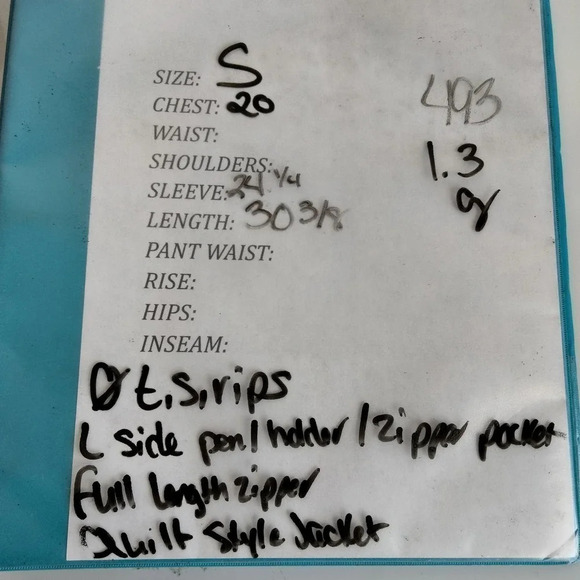 SIZE: S
CHEST: 20
493
WAIST:
1.3
SHOULDERS:
SLEEVE: 24 1/4
LENGTH: 30 3/8
PANT WAIST:
RISE:
HIPS:
INSEAM:
Ø t, s, rips
L side pen/holder/zipper pocket
Full length zipper
Quilt Style Jacket